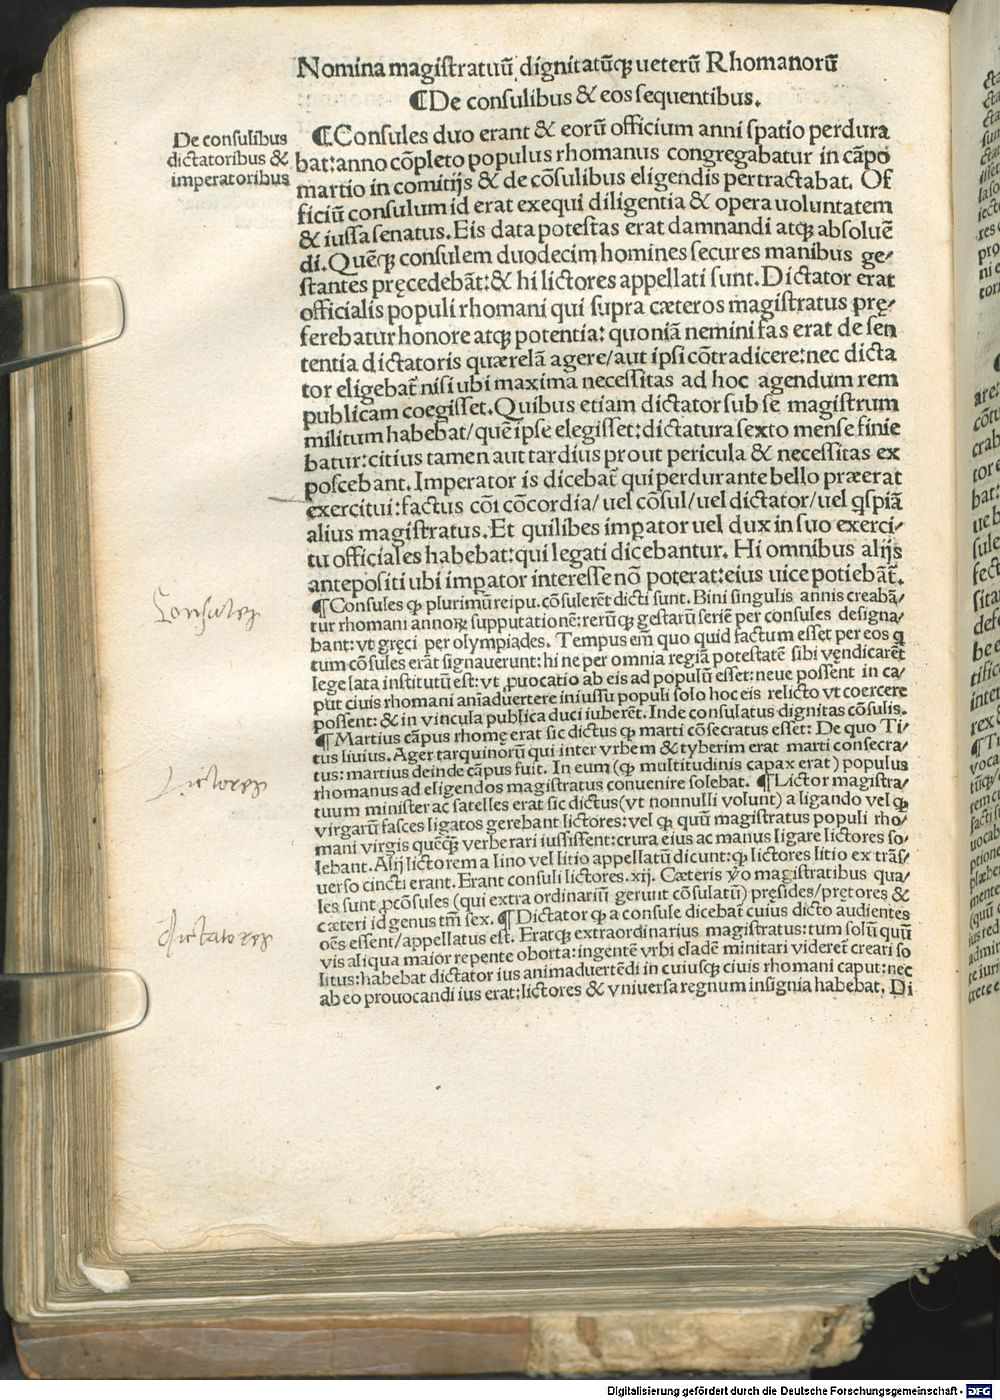 Nomina magistratuū dignitatūq; ueterū Rhomanorū
¶De consulibus & eos sequentibus.
De consulibus
dictatoribus &
imperatoribus
¶Consules duo erant & eorū officium anni spatio perdura
bat: anno cōpleto populus rhomanus congregabatur in cāpo
martio in comitijs & de cōsulibus eligendis pertractabat. Of
ficiū consulum id erat exequi diligentia & opera uoluntatem
& iussa senatus. Eis data potestas erat damnandi atq; absoluē
di. Quēq; consulem duodecim homines secures manibus ge/
stantes pręcedebāt: & hi lictores appellati sunt. Dictator erat
officialis populi rhomani qui supra cæteros magistratus prę/
ferebatur honore atq; potentia: quoniā nemini fas erat de sen
tentia dictatoris quærelā agere/ aut ipsi cōtradicere: nec dicta
tor eligebat̄ nisi ubi maxima necessitas ad hoc agendum rem
publicam coegisset. Quibus etiam dictator sub se magistrum
militum habebat/ quē ipse elegisset: dictatura sexto mense finie
batur: citius tamen aut tardius prout pericula & necessitas ex
poscebant. Imperator is dicebat̄ qui perdurante bello præerat
exercitui: factus cōi cōcordia/ uel cōsul/ uel dictator/ uel qspiā
alius magistratus. Et quilibes impator uel dux in suo exerci/
tu officiales habebat: qui legati dicebantur. Hi omnibus alijs
antepositi ubi impator interesse nō poterat: eius uice potiebāt̄.
Consules
¶Consules q; plurimū reipu. cōsulerēt dicti sunt. Bini singulis annis creabā/
tur rhomani annoꝝ supputationē: rerūq; gestarū seriē per consules designa/
bant: vt gręci per olympiades. Tempus em̄ quo quid factum esset per eos q
tum cōsules erāt signauerunt: hi ne per omnia regiā potestatē sibi vendicarēt
lege lata institutū est: vt ꝓuocatio ab eis ad populū esset: neue possent in ca/
put ciuis rhomani aniāduertere iniussu populi solo hoc eis relicto vt coercere
possent: & in vincula publica duci iuberēt. Inde consulatus dignitas cōsulis.
¶Martius cāpus rhomę erat sic dictus q; marti cōsecratus esset: De quo Ti/
tus liuius. Ager tarquinorū qui inter vrbem & tyberim erat marti consecra/
tus: martius deinde cāpus fuit. In eum (q; multitudinis capax erat) populus
Lictores
rhomanus ad eligendos magistratus conuenire solebat. ¶Lictor magistra/
tuum minister ac satelles erat sic dictus (vt nonnulli volunt) a ligando vel q;
virgarū fasces ligatos gerebant lictores: vel q; quū magistratus populi rho/
mani virgis quēq; verberari iussissent: crura eius ac manus ligare lictores so/
lebant. Alij lictorem a lino vel litio appellatū dicunt: q; lictores litio ex trās/
uerso cincti erant. Erant consuli lictores .xij. Cæteris ꝟo magistratibus qua/
les sunt ꝓcōsules (qui extra ordinariū gerunt cōsulatū) pręsides/ prętores &
cæteri id genus tm̄ sex. ¶Dictator q; a consule dicebat̄ cuius dicto audientes
Dictatores
oēs essent/ appellatus est. Eratq; extraordinarius magistratus: tum solū quū
vis aliqua maior repente oborta: ingentē vrbi cladē minitari viderēt̄ creari so
litus: habebat dictator ius animaduertēdi in cuiusq; ciuis rhomani caput: nec
ab eo prouocandi ius erat: lictores & vniuersa regnum insignia habebat. Di
Digitalisierung gefördert durch die Deutsche Forschungsgemeinschaft - DFG